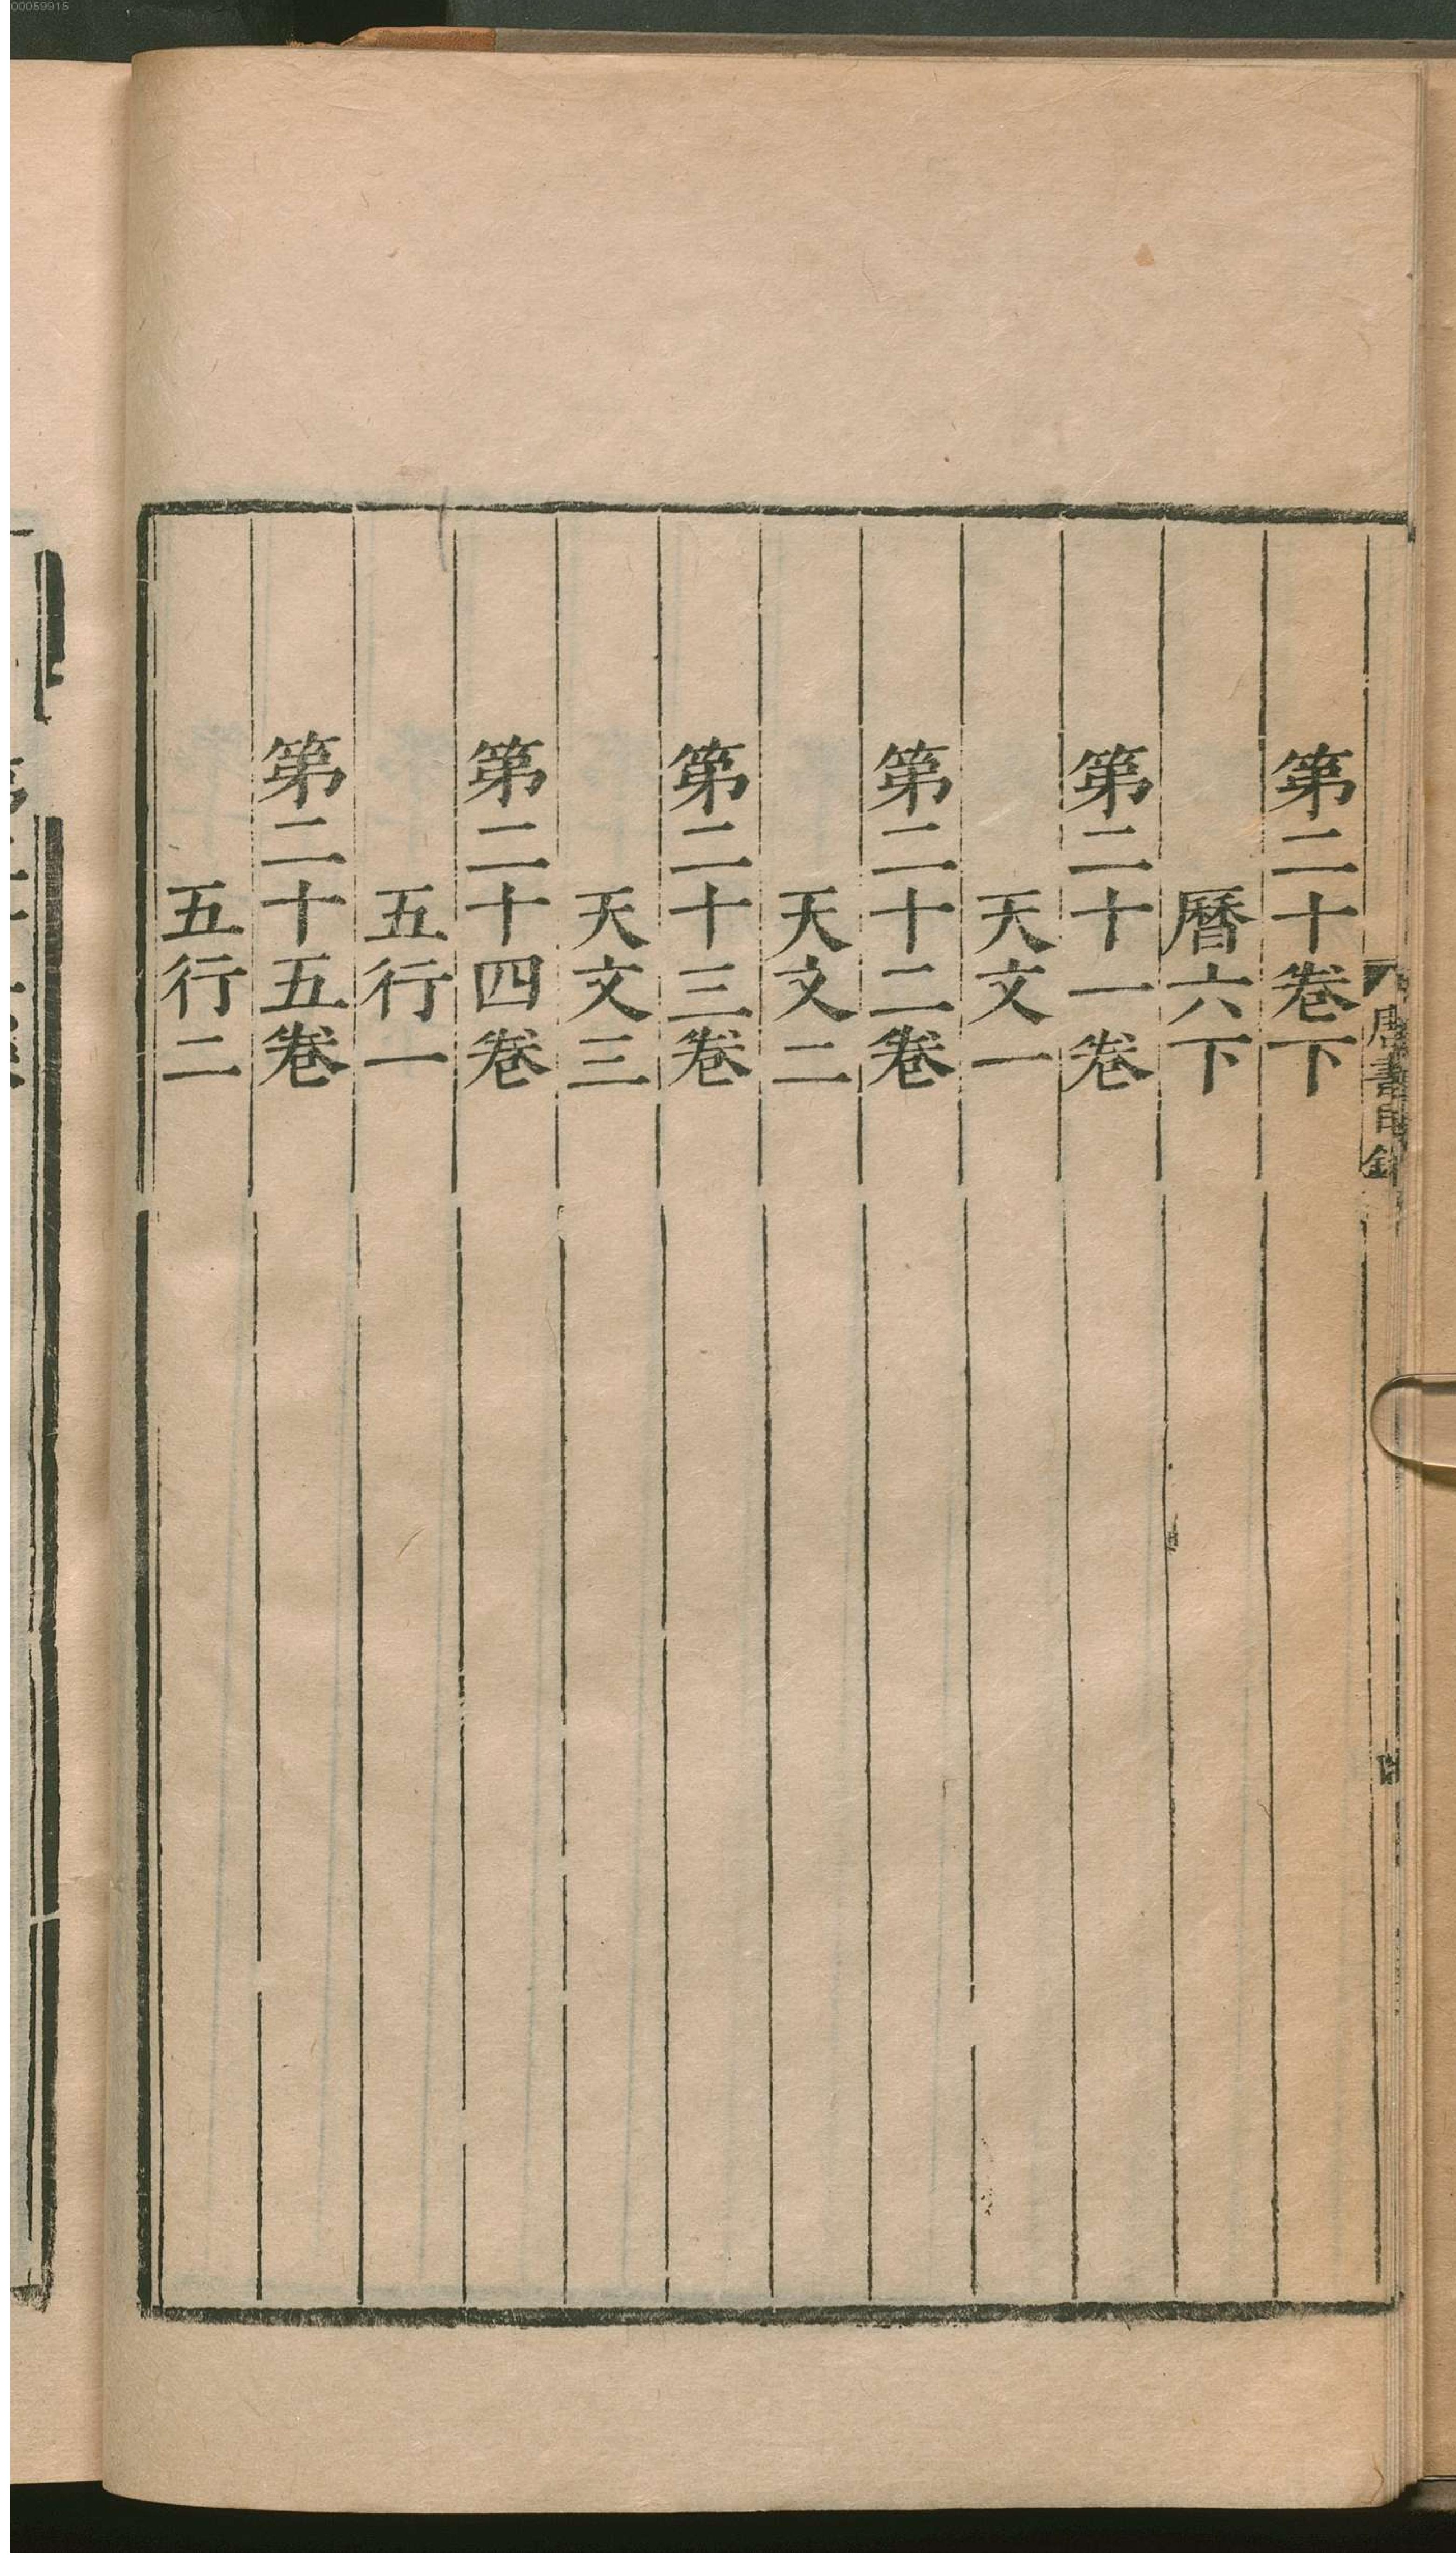 00059915
唐書目錄
第二十卷下
曆六下
第二十一卷
天文一
第二十二卷
天文二
第二十三卷
天文三
第二十四卷
五行一
第二十五卷
五行二